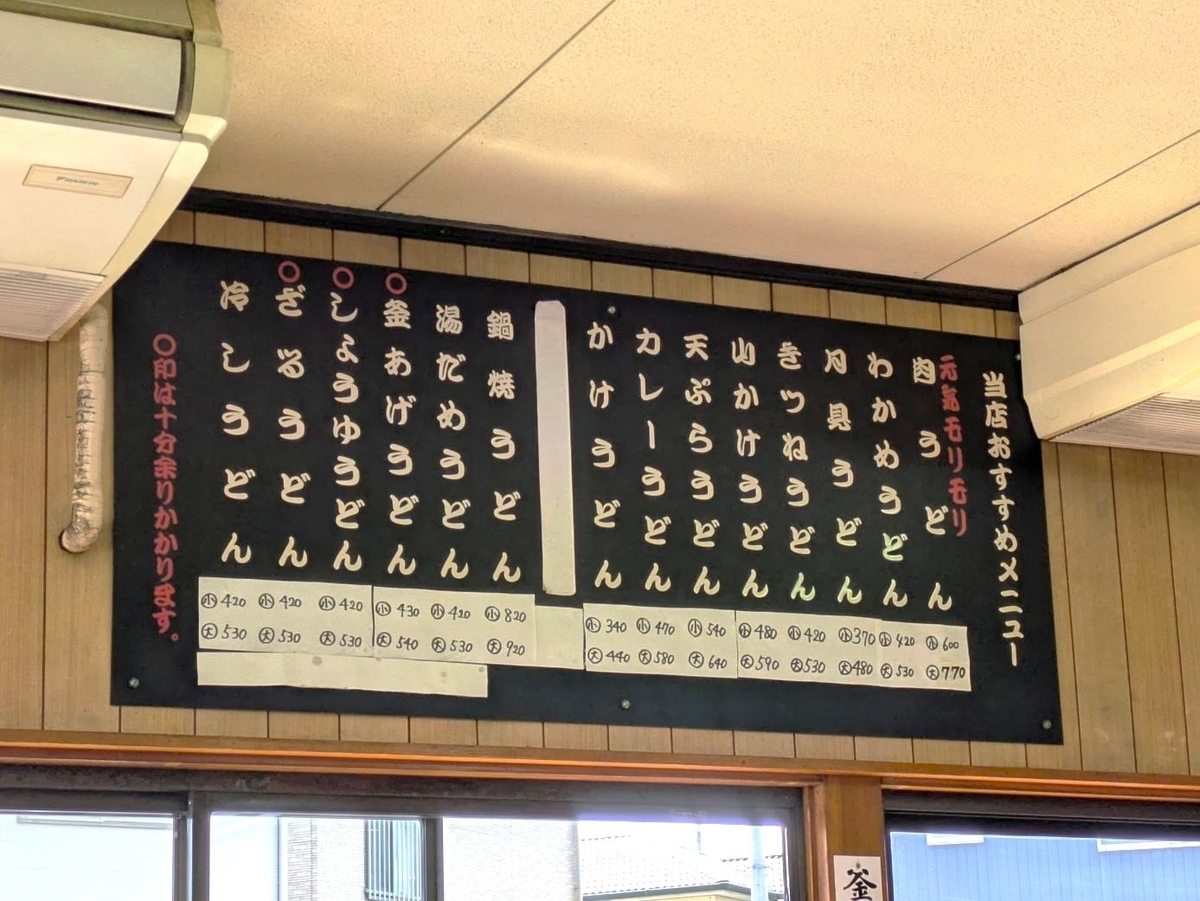 当店おすすめメニュー
元気モリモリ
肉うどん
小 600
大 770
わかめうどん
小 420
大 530
月見うどん
小 370
大 480
きつねうどん
小 420
大 530
山かけうどん
小 480
大 590
天ぷらうどん
小 540
大 640
カレーうどん
小 470
大 580
かけうどん
小 340
大 440
鍋焼うどん
小 820
大 920
湯だめうどん
小 420
大 530
○釜あげうどん
小 430
大 540
○しょうゆうどん
小 420
大 530
○ざるうどん
小 420
大 530
冷しうどん
小 420
大 530
○印は十分余りかかります。
釜